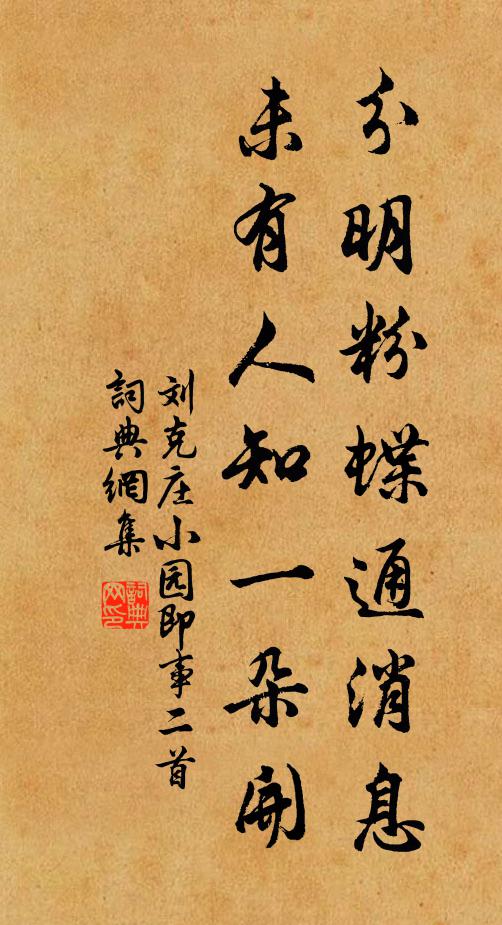 分明粉蝶通消息
未有人知一朵開
刘克庄小园即事二首
詞典網集
詞典网印